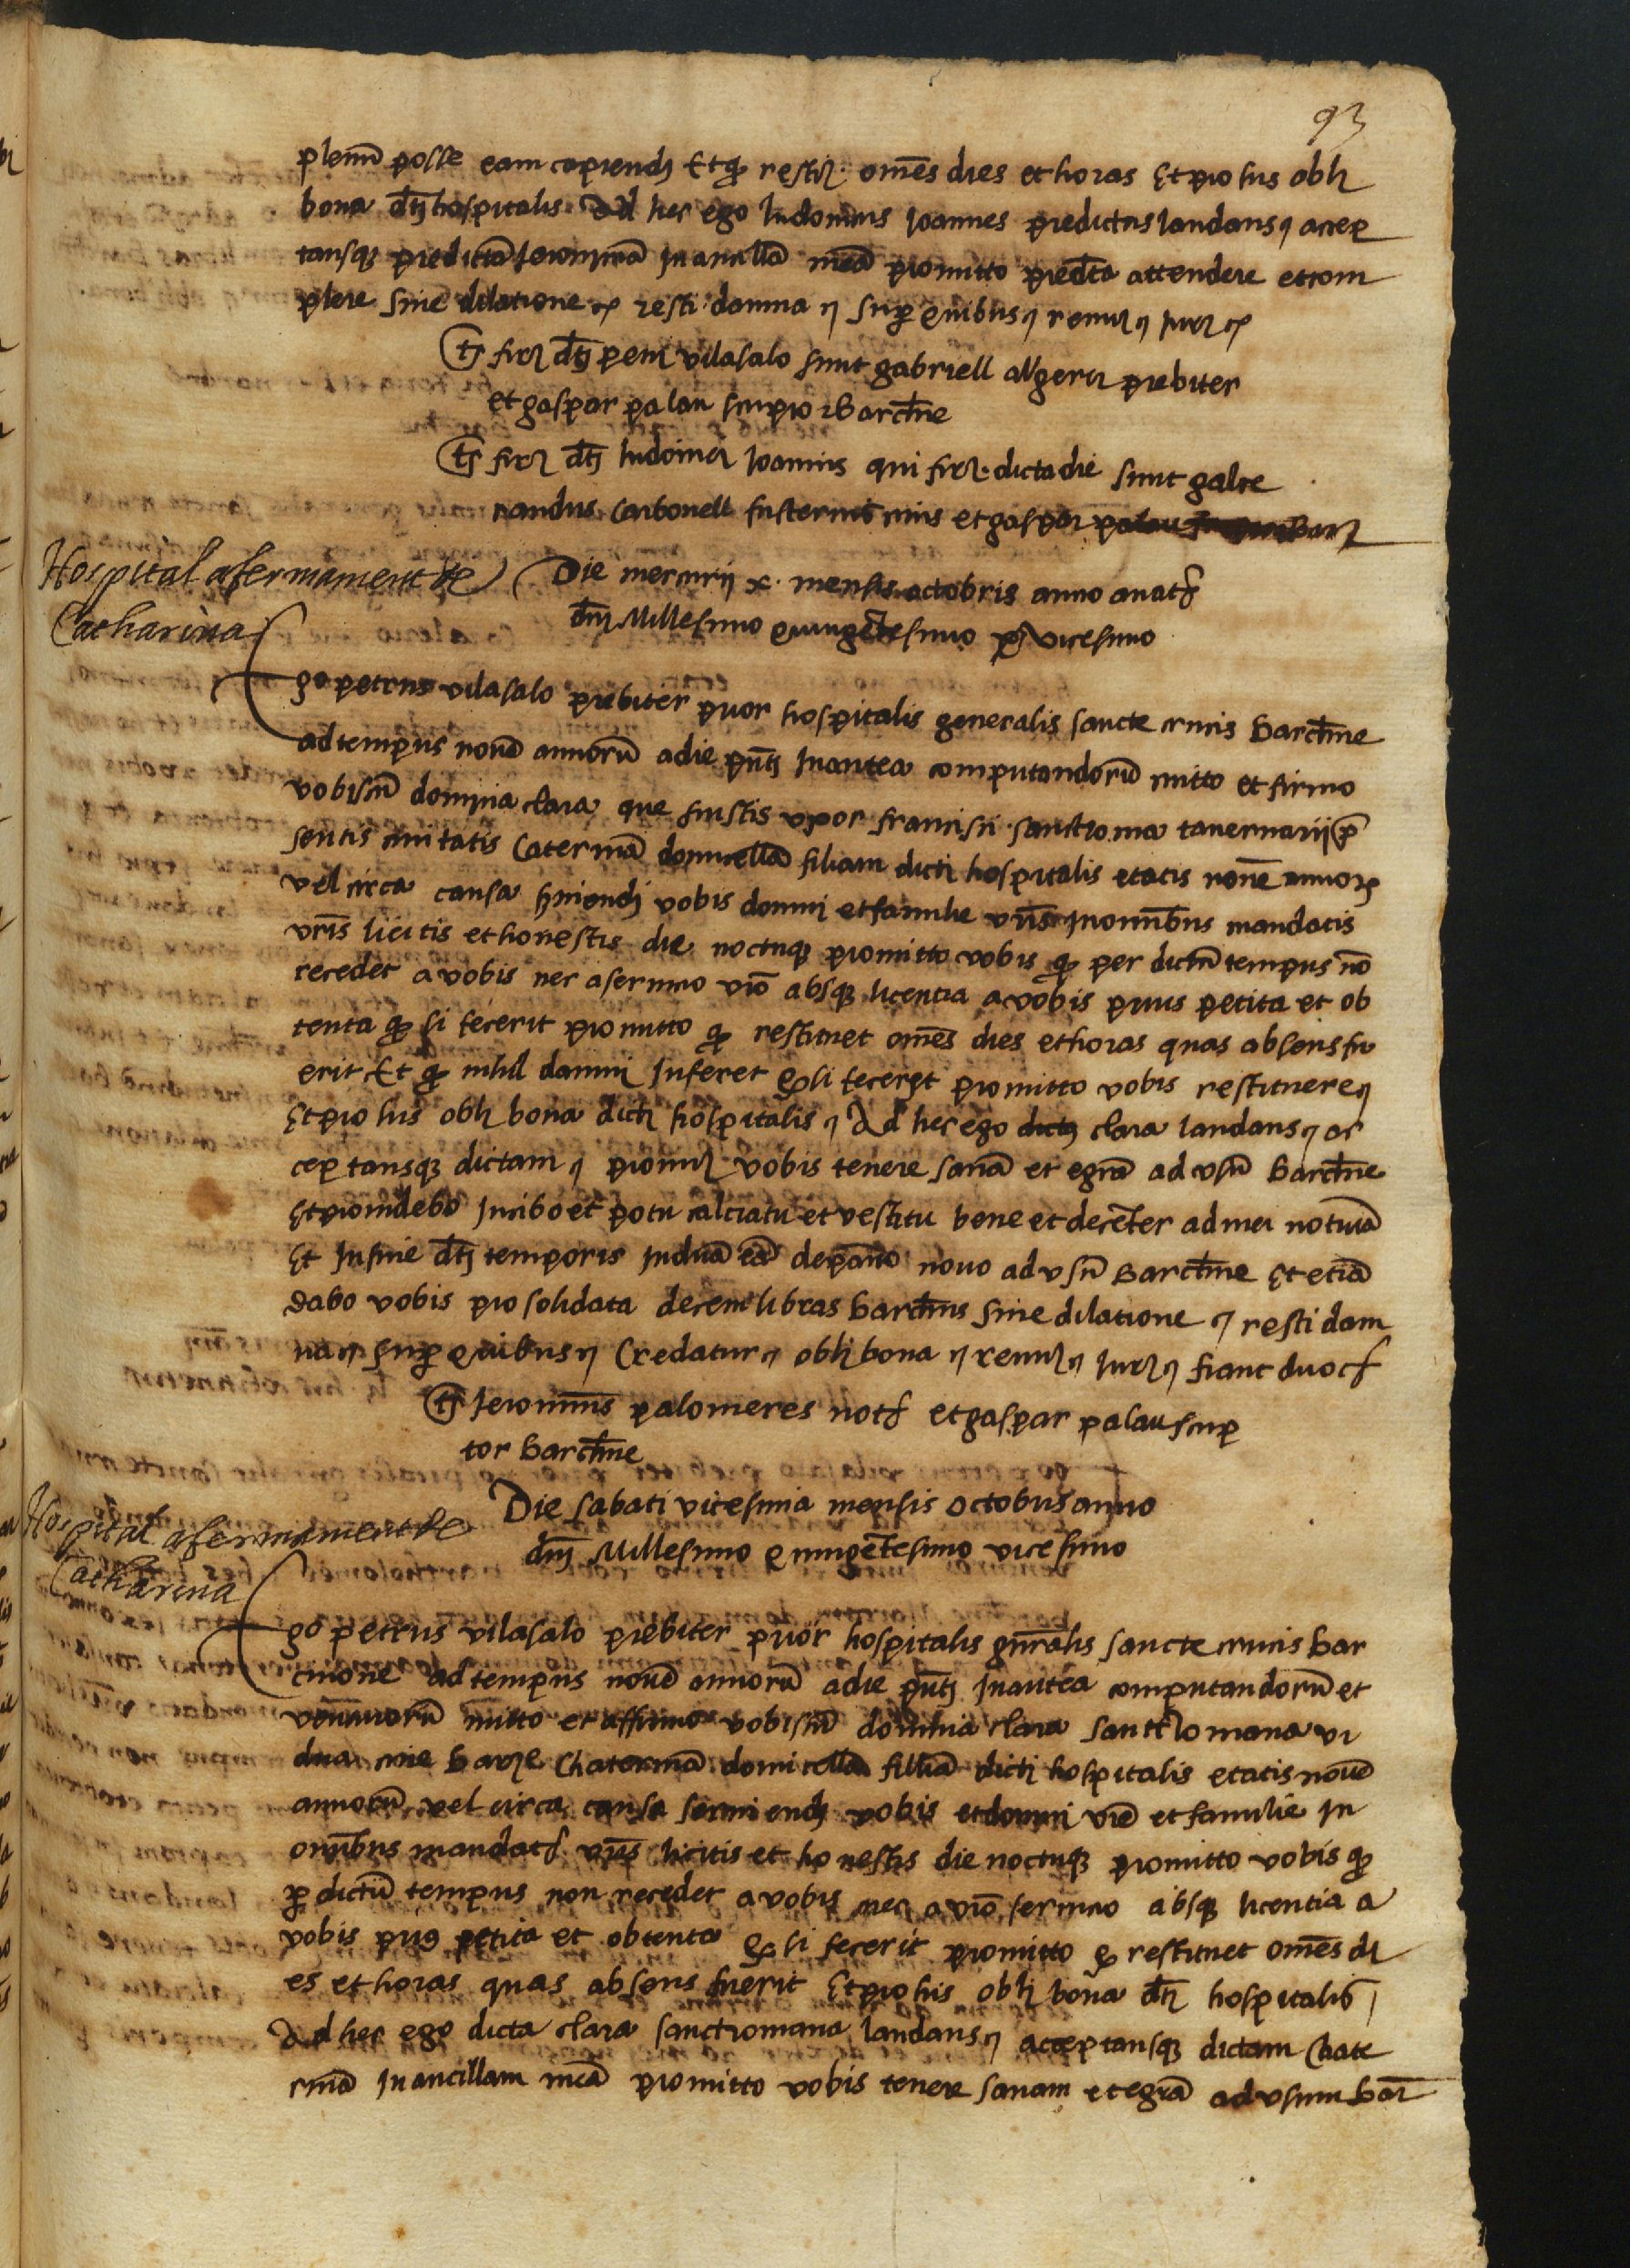 93
plenu posse eam capiendj Et q restiz omes dies et horas Et pro his oblj
bona dtj hospitalis Ad hec ego ludovicus Joannes predictus laudans accep
tansq predicta Jeronima In ancilla mea promitto predta attendere et com
plere sine dilatione restj damna sup quibus renuz Iurz
ts firz dtj petrj vilasalo sunt gabriell algerer prebiter
et gaspar palau scriptor Barchne
ts firz dtj ludovicj Joannis qui firz dicta die sunt galce
randus Carbonell fusterius civis et gaspar palau
Hospital afermament de
Catharina
Die mercurij x. mensis octobris anno a nat
dnj Millesimo quingetesimo vicesimo
Ego petrus vilasalo prebiter prior hospitalis generalis sancte crucis barchne
ad tempus nove annoru a die pntj In antea computandoru mitto et firmo
vobiscu domina clara que fuistis uxor francisci sanctroma tavernarij pre
sentis civitatis Caterina domicella filiam dicti hospitalis etatis nove annor
vel circa causa serviendj vobis domui et familie vris In omnibus mandatis
vris licitis et honestis die noctuq promitto vobis q per dictu tempus no
recedet a vobis nec a servicio vro absq licentia a vobis prius petita et ob
tenta q si fecerit promitto q restituet omes dies et horas quas absens fu
erit Et q nihil damni Inferet q si fecerit promitto vobis restituere
Et pro his oblj bona dictj hospitalis Ad hec ego clara laudans ac
ceptansq dictam promiz vobis tenere sana et egra ad usu barchne
Et providebo In cibo et potu calciatu et vestitu bene et decenter ad mei notuia
Et In fine dtj temporis Indua ea de pano novo ad usu Barchne Et etia
dabo vobis pro solidata decem libras barchns sine dilatione restj dam
na sup quibus Credatur oblj bona renuz Iurz fiant duo
ts Jeronimus palomeres not et gaspar palau scrip
tor Barchne
Hospital afermament de
Catharina
Die sabati vicesima mensis octobris anno
dnj Millesimo quingetesimo vicesimo
Ego petrus vilasalo prebiter prior hospitalis gnralis sancte crucis bar
cinone ad tempus nove annoru a die pntj In antea computandoru et
venturoru mitto et affirmo vobiscu domina clara sanctromana vi
dua cive Barne Chaterina domicella filia dictj hospitalis etatis nove
annoru vel circa causa serviendj vobis et domui vre et familie In
omibus mandat vris licitis et honestis die noctuq promitto vobis q
p dictu tempus non recedet a vobis nec a vro servicio absq licentia a
vobis prius petita et obtenta q si fecerit promitto q restituet omes di
es et horas quas absens fuerit Et pro his oblj bona dtj hospitalis
Ad hec ego dicta clara sanctromana laudans acceptansq dictam Chate
rina In ancillam mea promitto vobis tenere sanam et egra ad usum bar